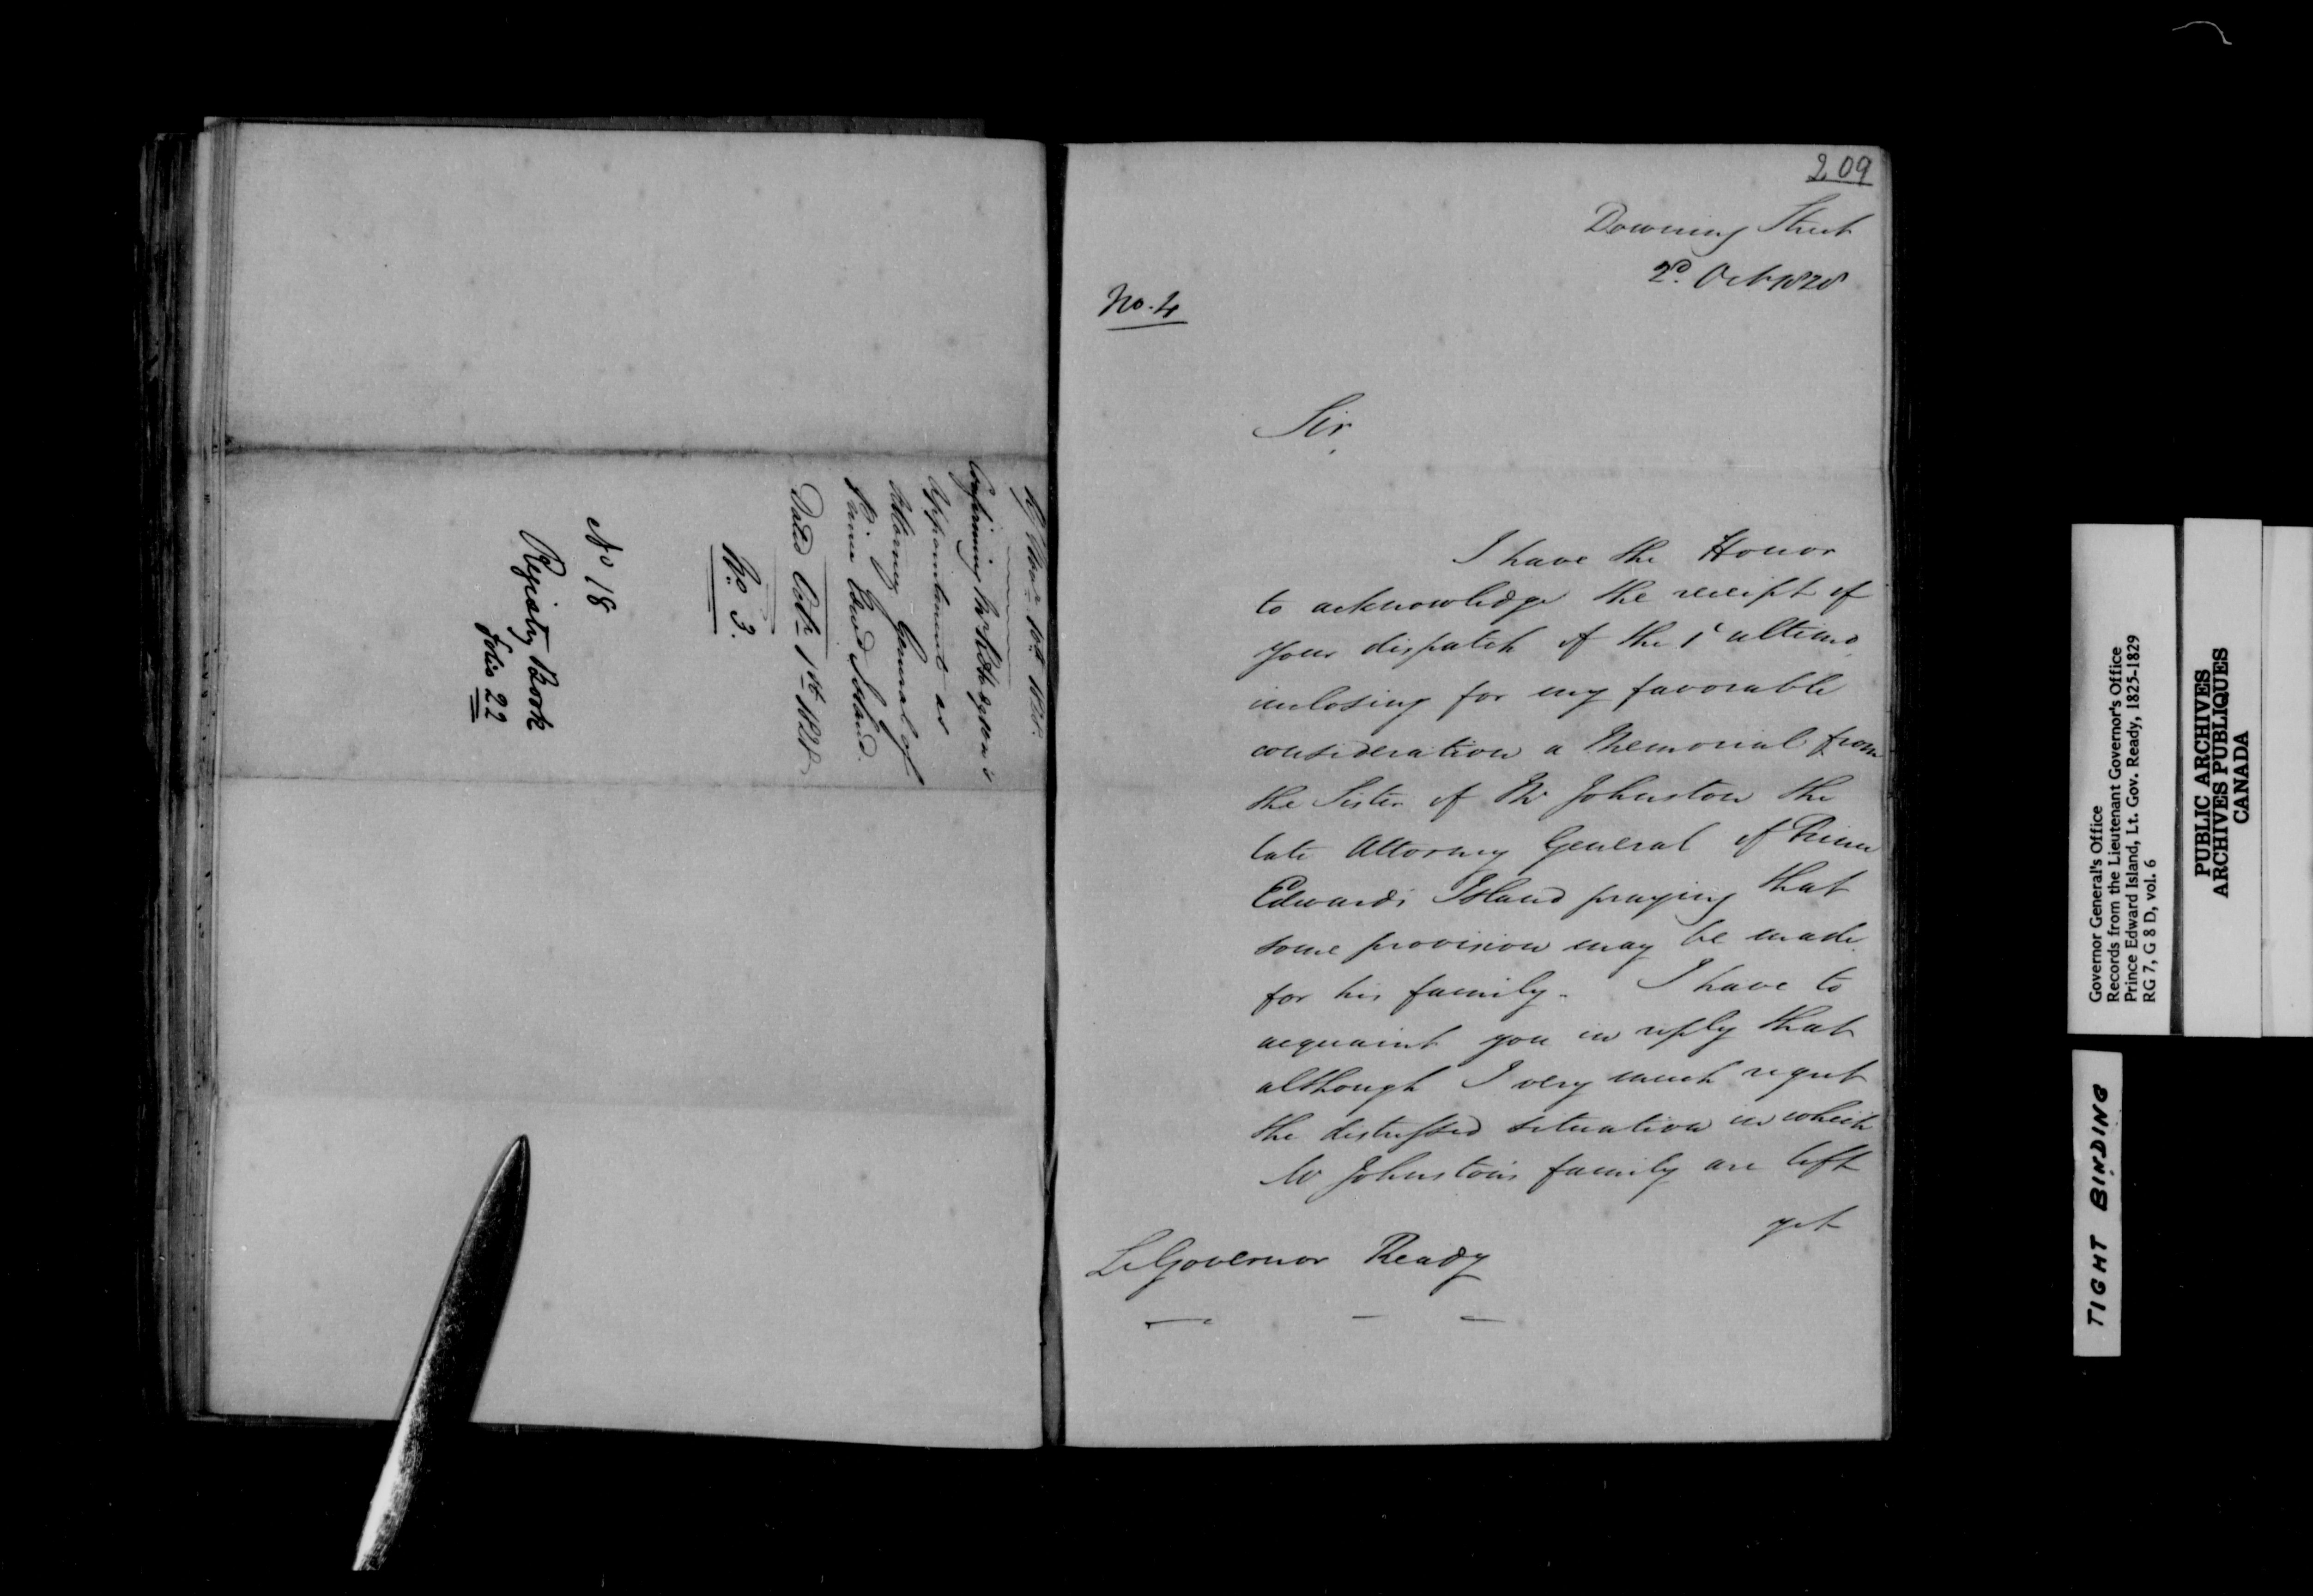 Confirming Mr Hodgson's
Appointment as
Attorney General of
Prince Edwd Island.
Dated Octr 1st 1828
No 3.
No 18
Registry Book
folio 22
209
Downing Street
2d. Oct 1828
No. 4
Sir,
I have the Honor
to acknowledge the receipt of
your dispatch of the 1t ultimo
inclosing for my favorable
consideration a Memorial from
the Sister of Mr Johnston the
late Attorney General of Prince
Edwards Island praying that
some provision may be made
for his family. I have to
acquaint you in reply that
although I very much regret
the distressed situation in which
Mr Johnston's family are left
yet
Lt Governor Ready
Governor General's Office
Records from the Lieutenant Governor's Office
Prince Edward Island, Lt. Gov. Ready, 1825-1829
RG 7, G 8 D, vol. 6
PUBLIC ARCHIVES
ARCHIVES PUBLIQUES
CANADA
TIGHT BINDING